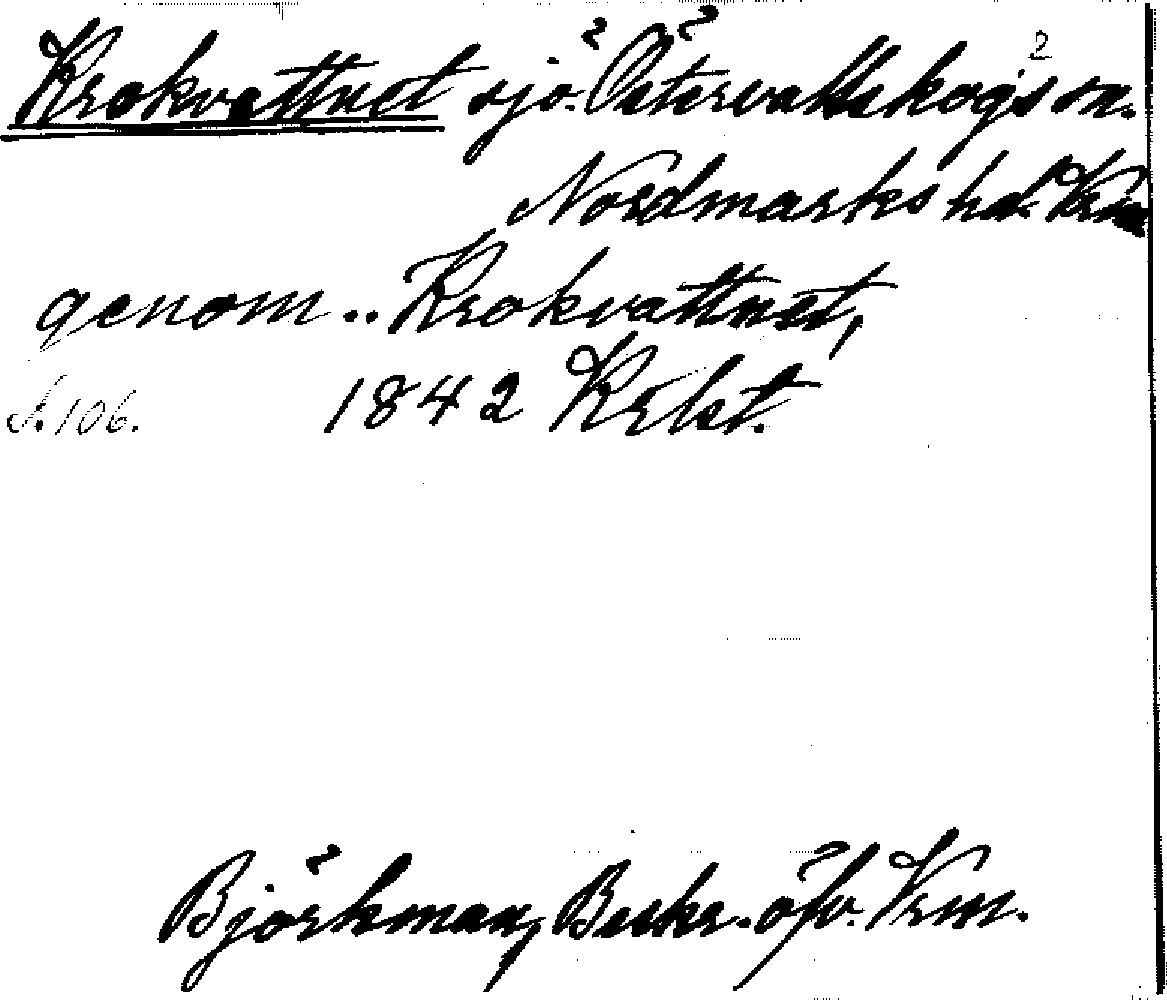 2
Krokvattnet sjö. Östervallskogs sn.
Nordmarks hd. Vrm
genom .. Krokvattnet,
S. 106. 1842 Krlst.
Björkman, Beskr. öfv. Vrm.